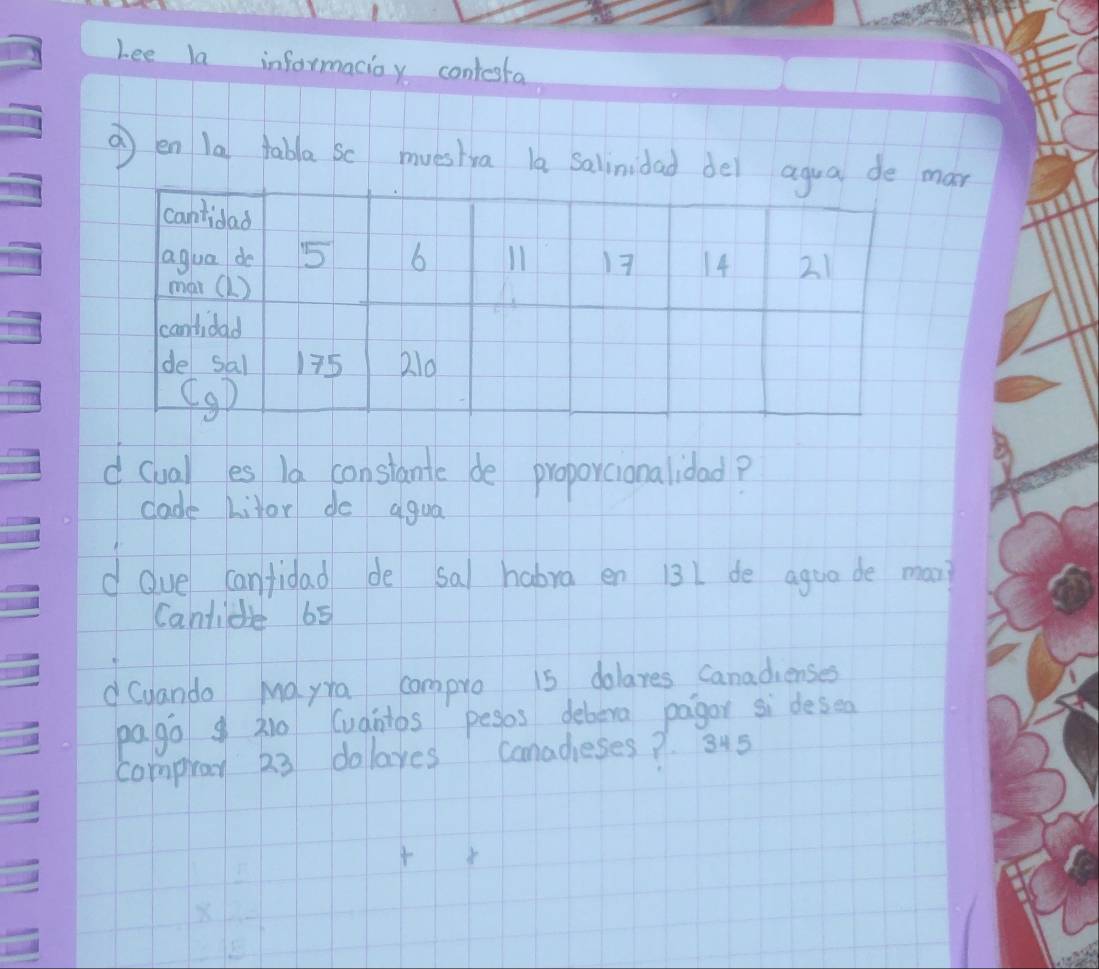 Lee la informacio y contesta
a) en la tabla se muestra la salinidad del agua de mar
cantidad agua de mar (L) 5 6 11 17 14 21
cantidad de sal (g) 175 210
¿Cual es la constante de proporcionalidad?
cade Litor de agua
¿Que cantidad de sal habra en 13 L de agua de mar?
Cantidte 65
¿Cuando Mayra compro 15 dolares canadienses
pagó $ 210 Cuantos pesos debera pagar si desea
comprar 23 dolares canadieses? 345